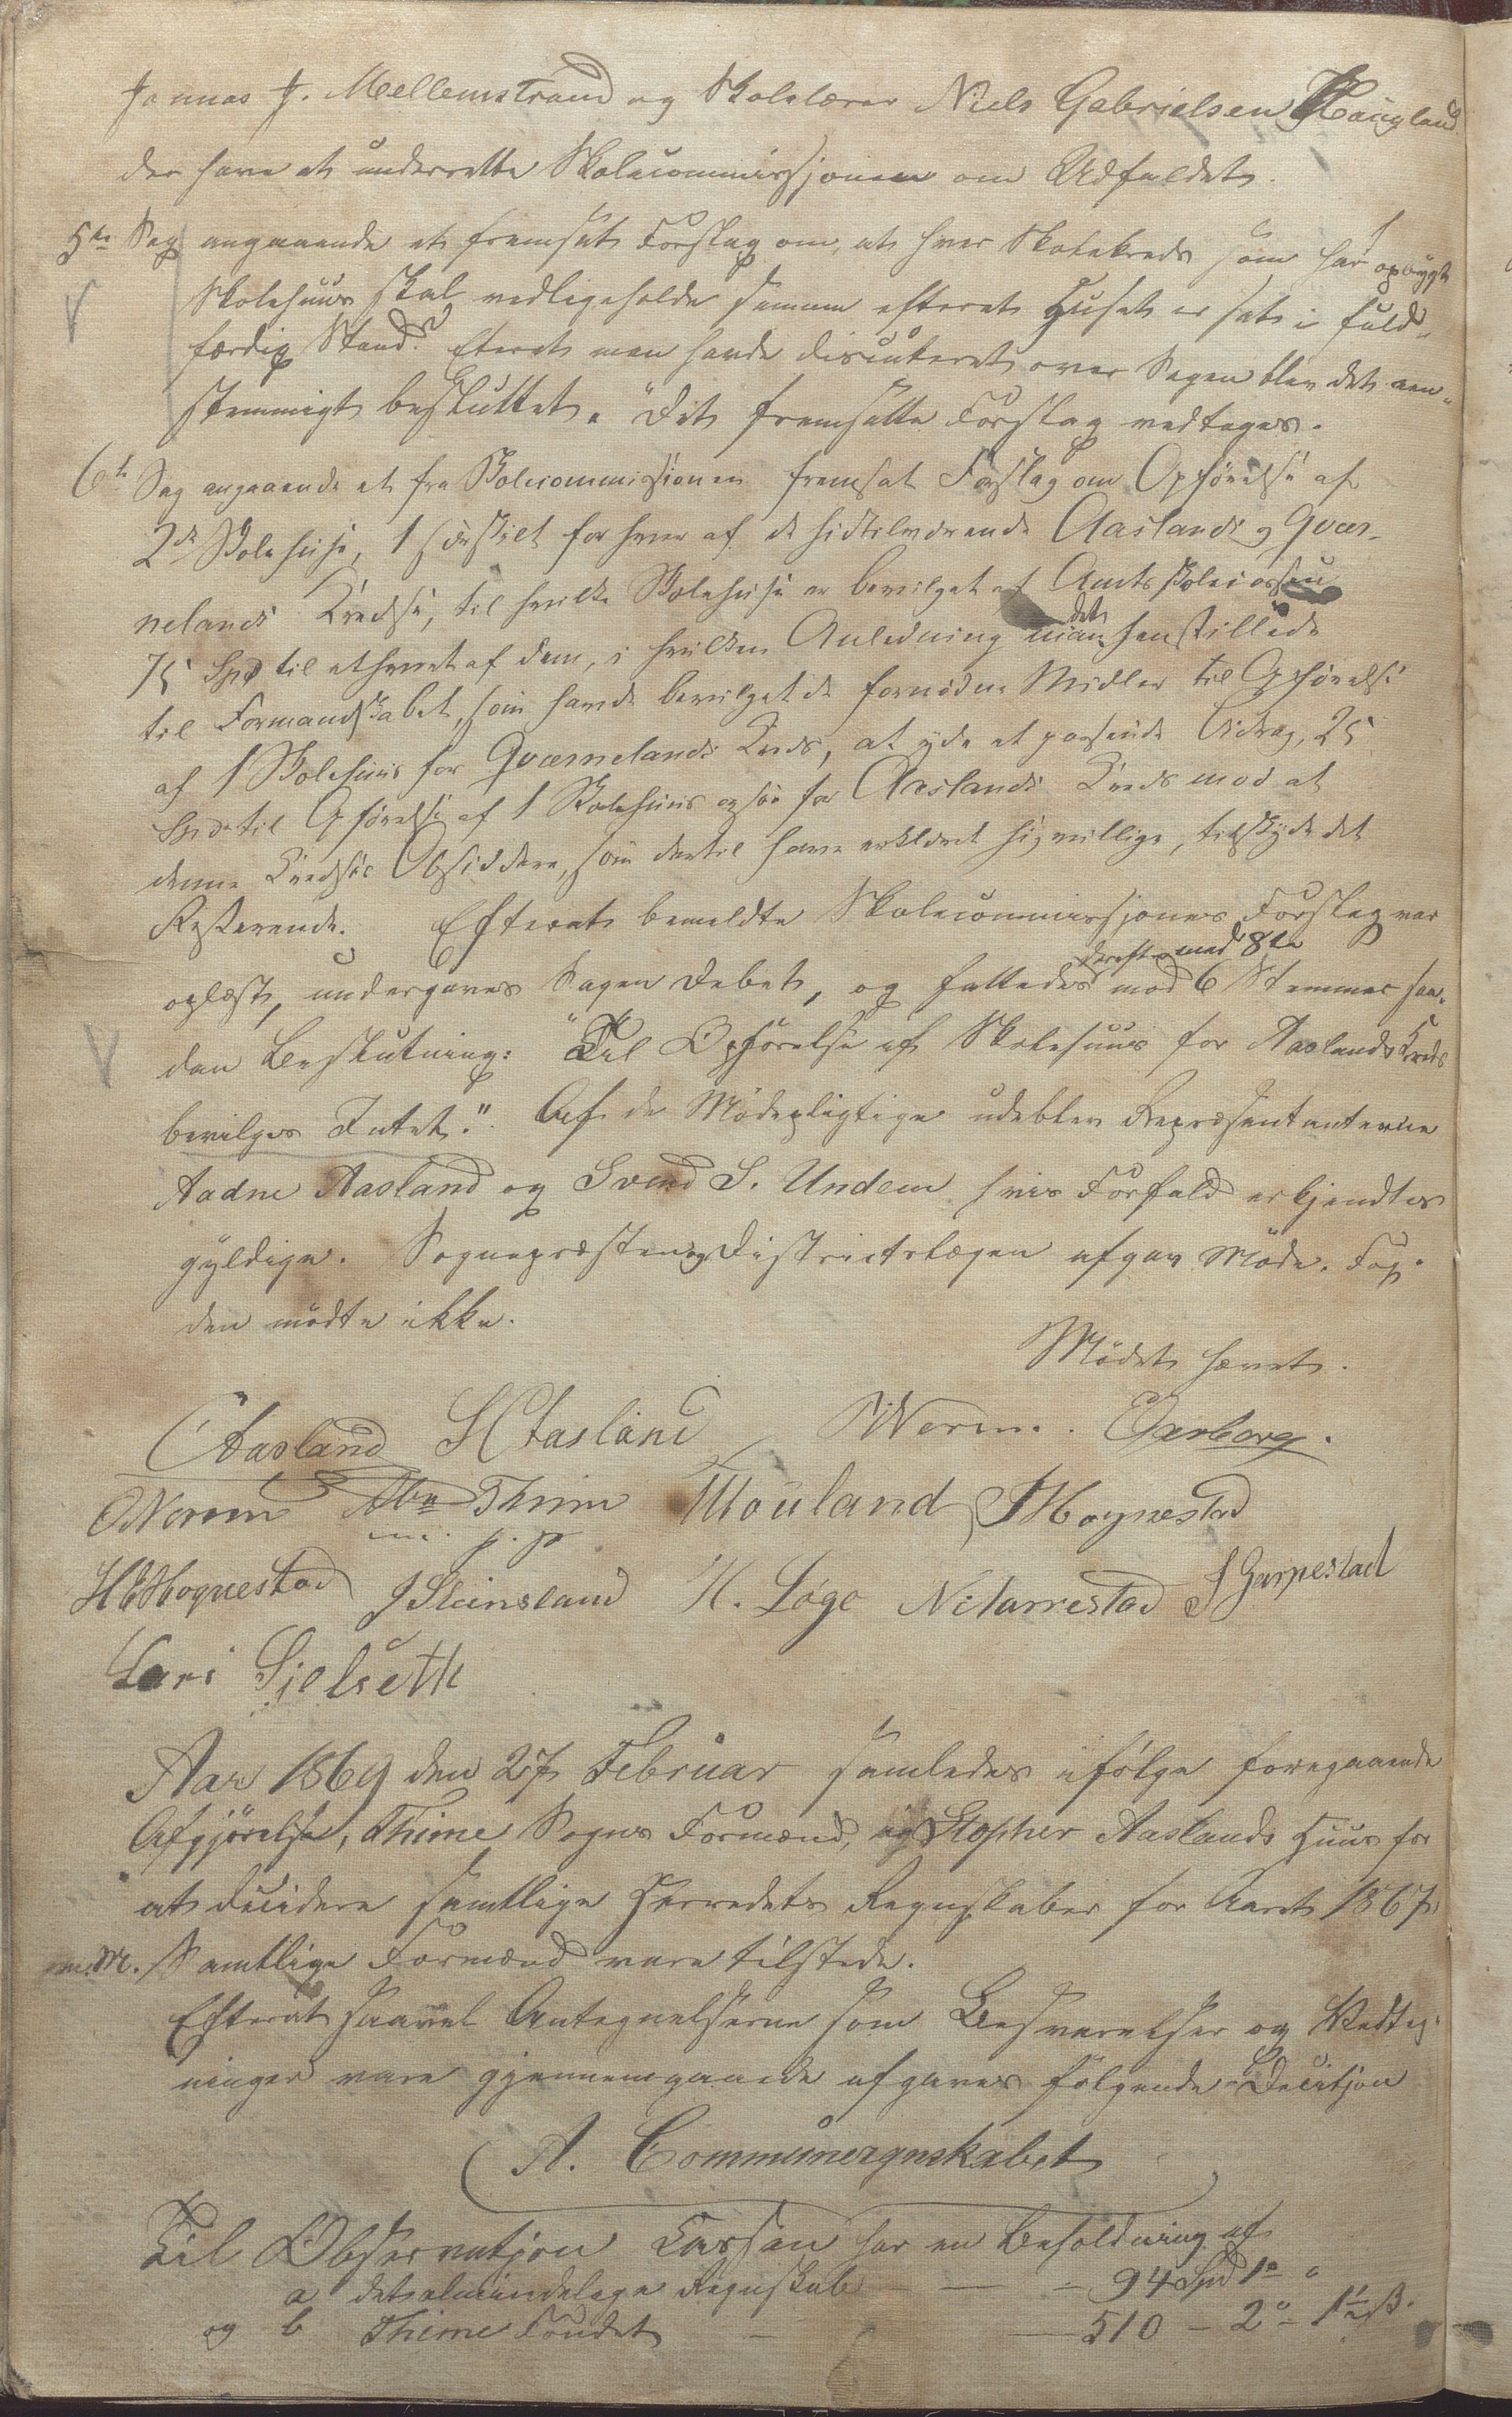 Jonnas J. Mellemstrand og Skolelærer Niels Gabrielsen Haugland
der have at underrette Skolecommissjonen om Udfaldet.
5te Sag angaaende et fremsat Forslag om, at hver Skolekreds som har opbygt
Skolehuus skal vedligeholde samme efterat Huset er sat i fuld-
færdig Stand. Efterat man havde discuteret over Sagen blev det een-
stemmigt besluttet. "Det fremsatte Forslag vedtages.
6te Sag angaaende et fra Skolecommissionen fremsat Forslag om Opførelse af
2de Skolehuse, 1 særskilt for hver af de hidtilværende Aaslands og Qvær-
nelands Kredse, til hvilke Skolehuse er bevilget af Amtsskolecassen
75 Spd til ethvert af dem, i hvilken Anledning man det henstillede
til Formandskabet, som havde bevilget de fornødne Midler til Opførelse
af 1 Skolehuus for Qværnelands Kreds, at yde et passende Bidrag, 25
Spd til Opførelse af 1 Skolehuus ogsaa for Aaslands Kreds mod at
denne Kredses Opsiddere, som dertil have erklæret sig villige, tilskyde det
Resterende. Efterat bemeldte Skolecommissjones Forslag var
oplæst, undergaves Sagen Debat, og fattedes derefter med 8te mod 6 Stemmer saa-
dan Beslutning: "Til Opførelse af Skolehuus for Aaslands Kreds
bevilges Intet." Af de Mødepligtige udeblev Repræsentanterne
Aadne Aasland og Svend S. Undem hvis Forfald erkjendtes
gyldige. Sognepræsten og Districtslægen afgav Møde. Fog-
den mødte ikke.
Mødet hævet.
Aasland S Aasland Werem. Garborg.
O Nerem Thime Mouland S Hognestad
m. p. p
H Hognestad J Steinsland H. Löge N Tarrestad S Garpestad
Lars Sielseth
Aar 1869 den 27 Februar samledes ifølge foregaaende
Afgjørelse, Thime Sogns Formænd, i Stopher Aaslands Huus for
at decidere samtlige Herredets Regnskaber for Aaret 1867
m. M. Samtlige Formænd vare tilstede.
Efterat saavel Antegnelserne som Besvarelser og Vedteg-
ninger vare gjennemgaaede afgaves følgende Decitjon
A. Communeregnskabet
Til Observatjon Cassen har en Beholdning af
a det almindelege Regnskab — — 94 Spd 1 "
og b Thime Fondet — — 510 — 2 — 1½ ß.